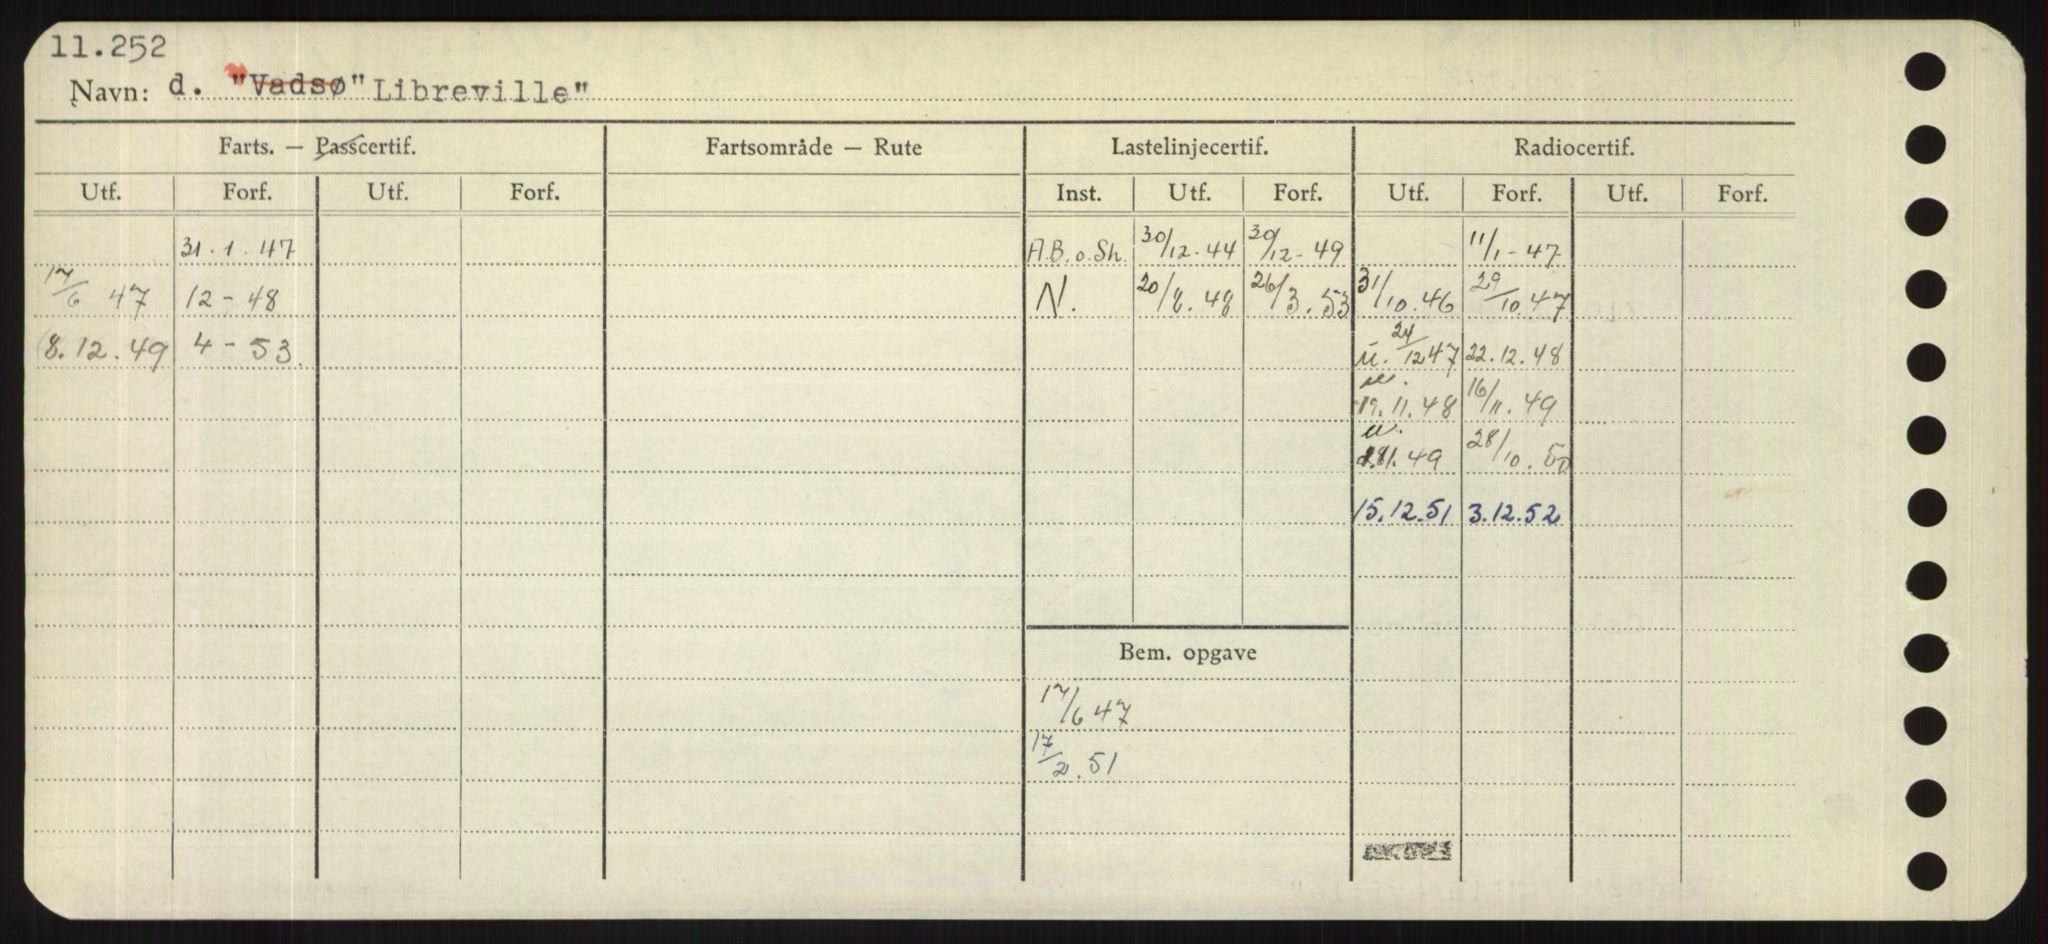 11.252
Navn: d. "Vadsø" Libreville"
Farts. — Passcertif. Fartsområde — Rute Lastelinjecertif. Radiocertif.
Utf. Forf. Utf. Forf. Inst. Utf. Forf. Utf. Forf. Utf. Forf.
31.1.47 A.B.o.Sh. 30/12.44 30/12-49 11/1-47
17/6 47 12-48 N. 20/8.48 26/3.53 31/10.46 29/10.47
8.12.49 4-53 u. 24/12 47 22.12.48
u. 19.11.48 16/11.49
u. 49 28/10.50
15.12.51 3.12.52
Bem. opgave
17/6 47
17/2.51